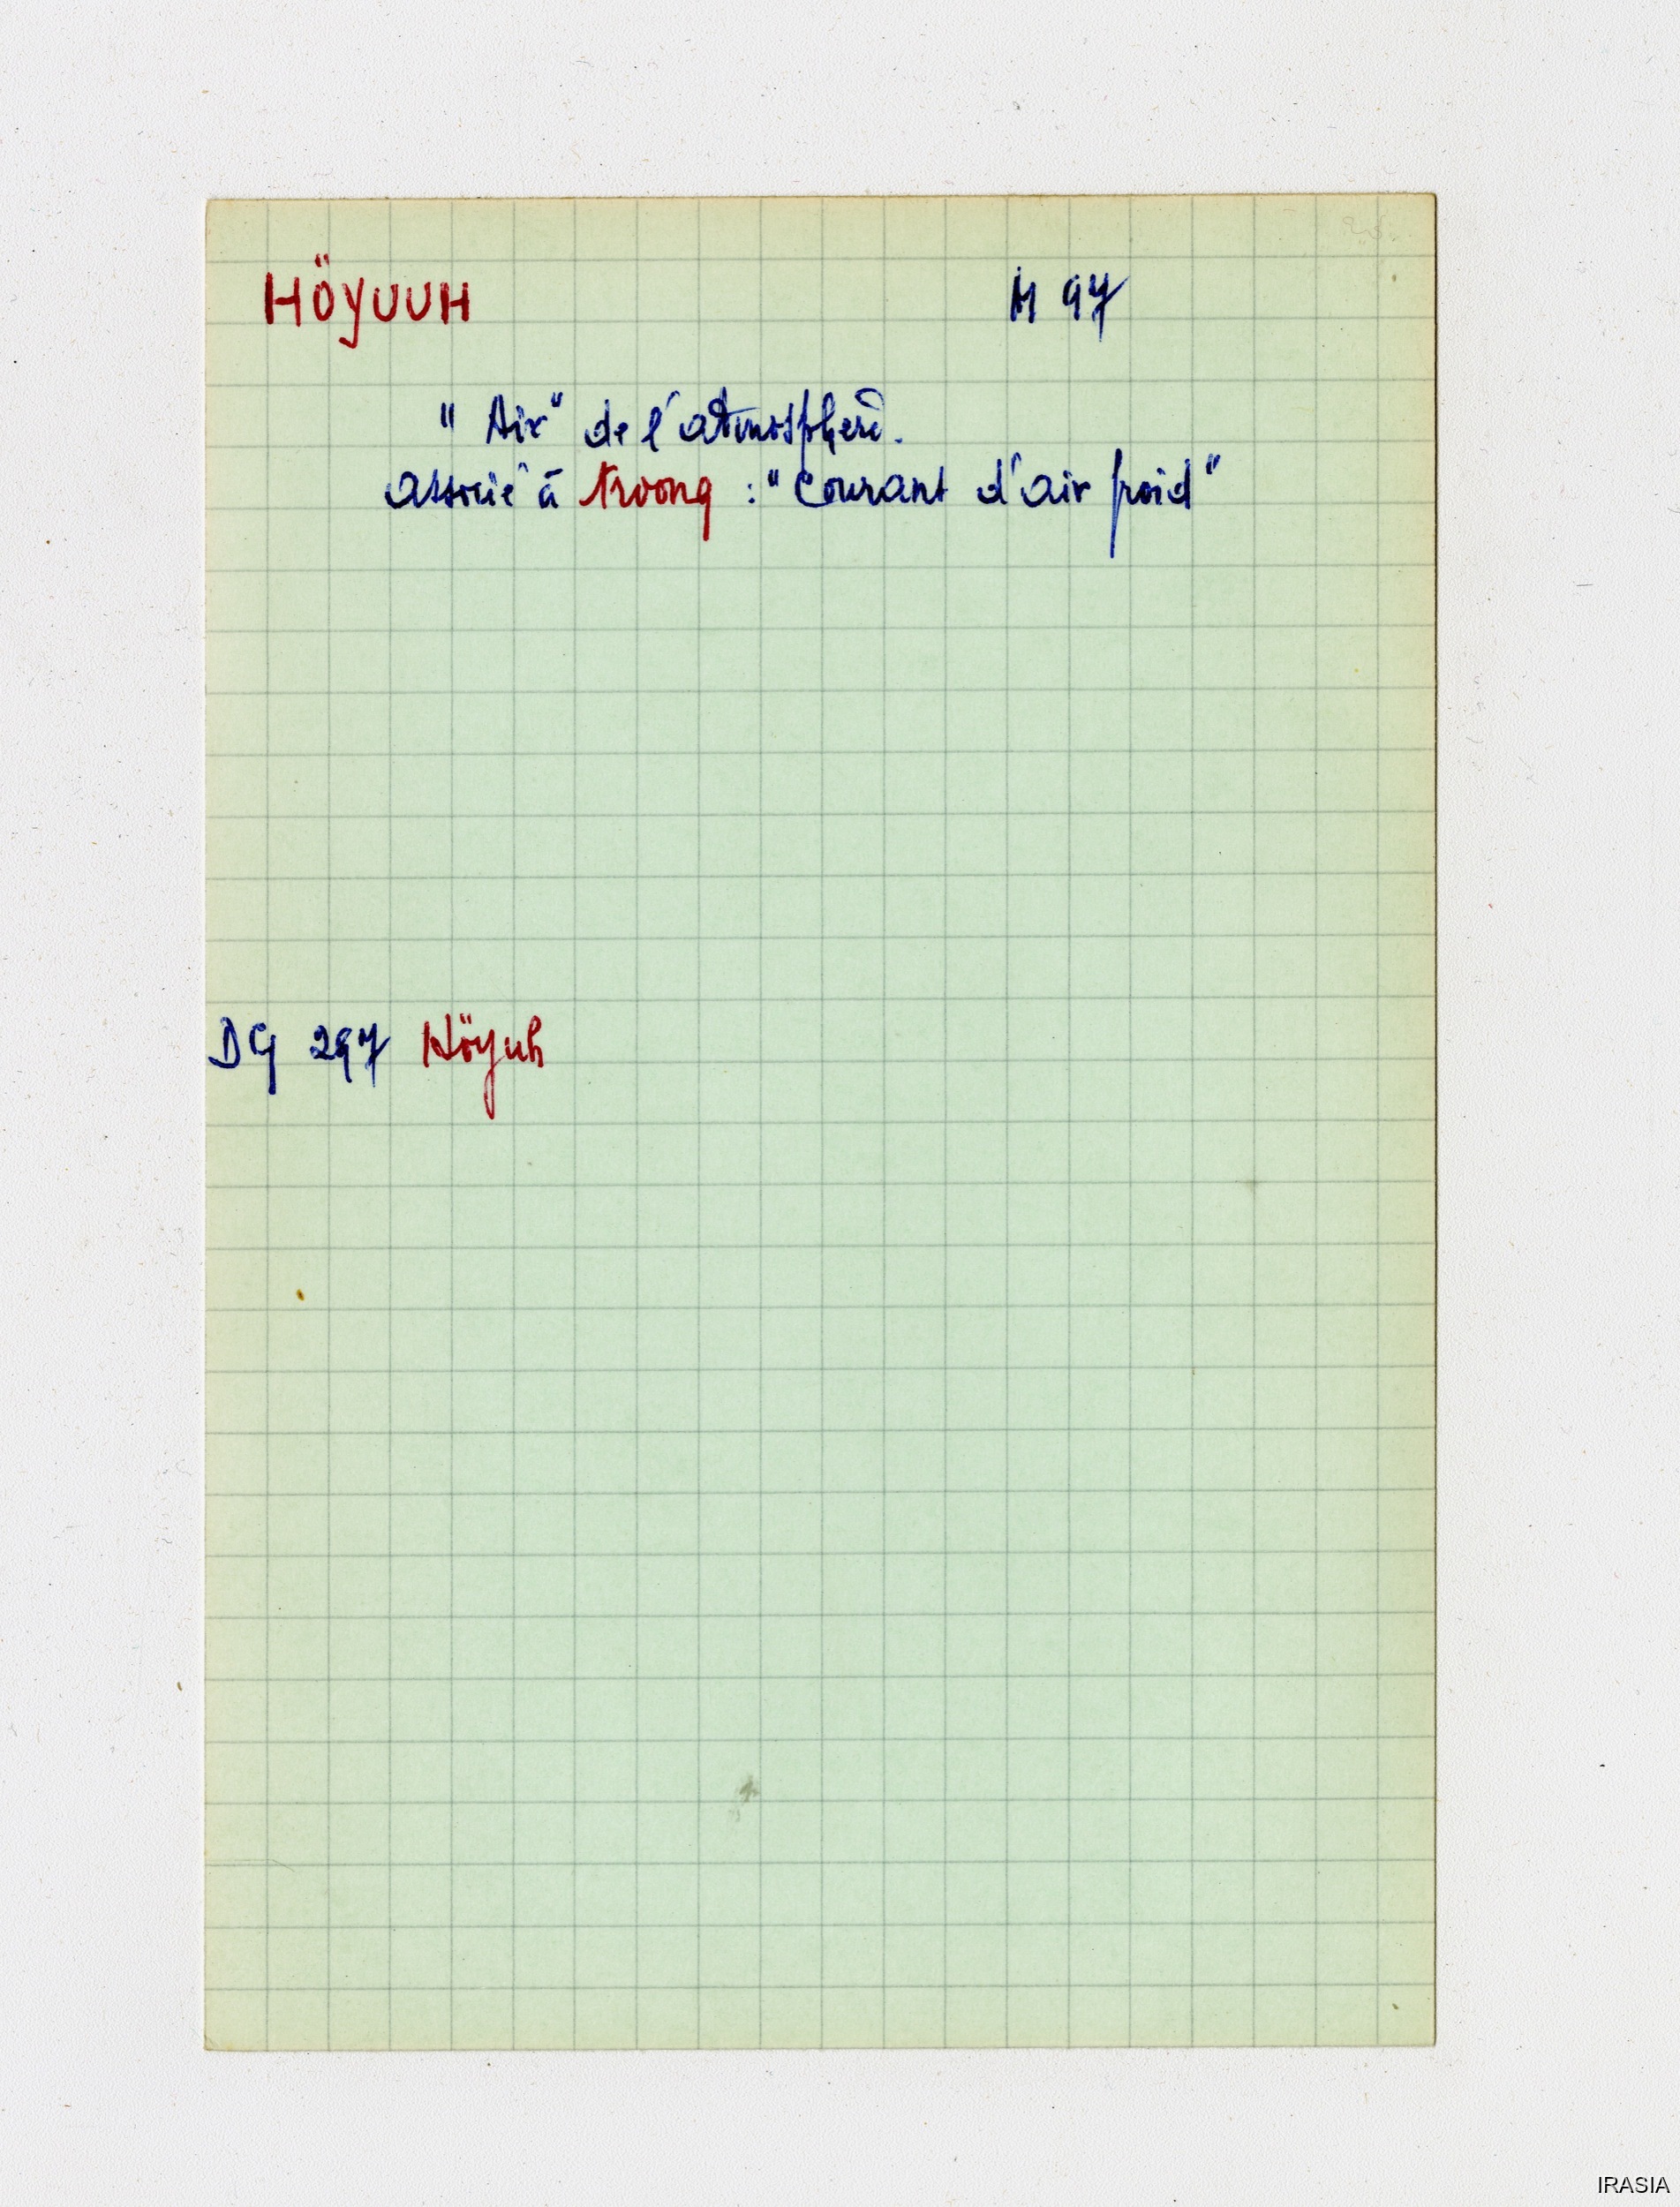 HÖYUUH M 97
"Air" de l'atmosphère.
associé à troong : "Courant d'air froid"
DG 297 Höyuh
IRASIA